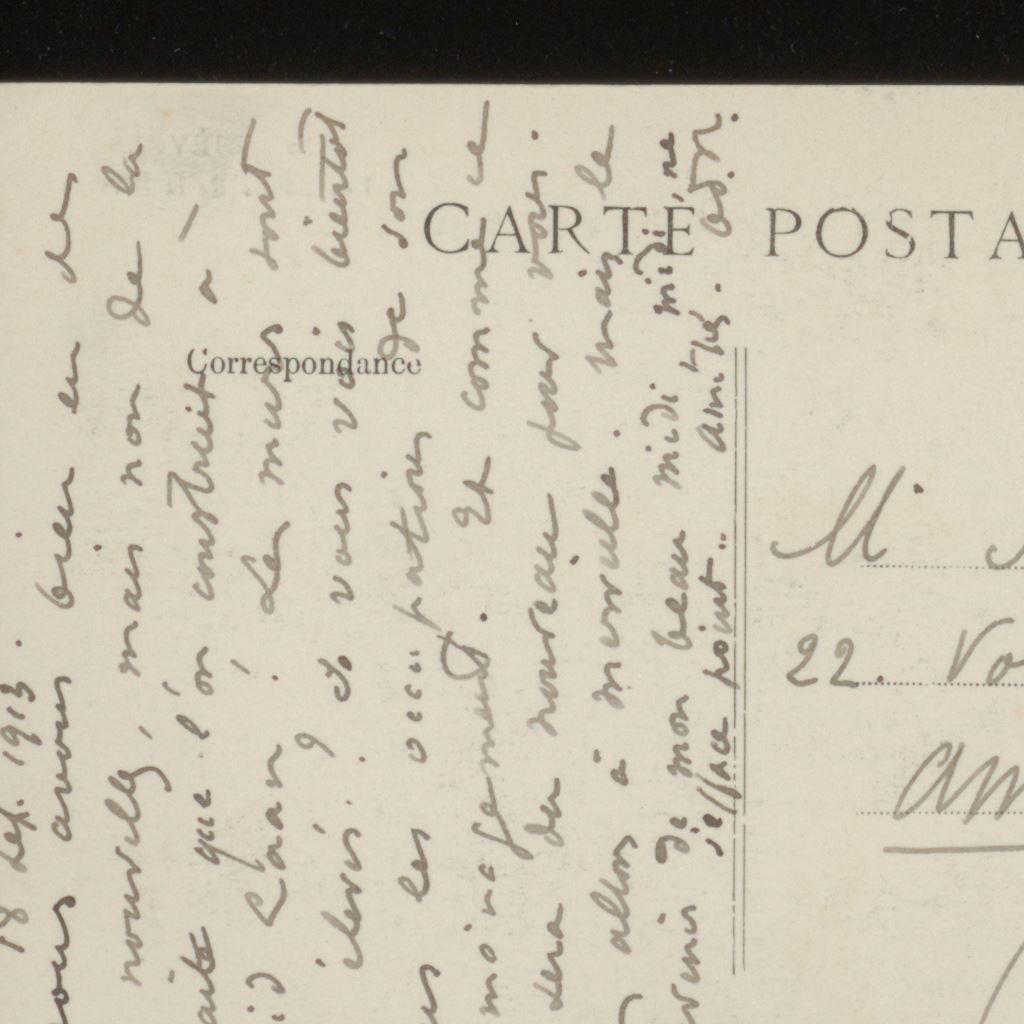 CARTE POSTA
Correspondance
18 sep. 1913.
nous avons bien eu des
nouvelles, mais non de la
que l'on construit à
Laan. Les murs sont
élevés. Je vous vais bientôt
les occupations de son
Et comme ce
sera du nouveau pour vous.
allons à merveille. mais le
de mon beau midi midi, ne
s'efface point.. amitiés. Ad. R.
M.
22. Vo
Am